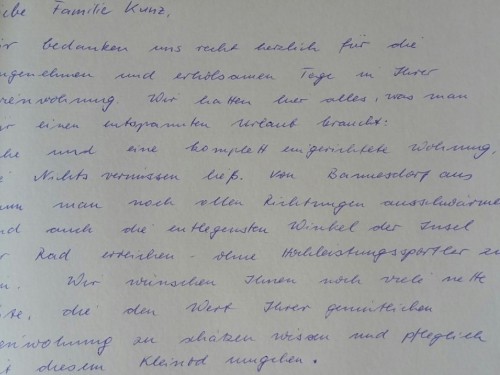 ebe Familie Kunz,
ir bedanken uns recht herzlich für die
ngenehmen und erholsamen Tage in Ihrer
rienwohnung. Wir hatten hier alles, was man
ür einen entspannten Urlaub braucht:
he und eine komplett eingerichtete Wohnung,
e Nichts vermissen ließ. Von Bannesdorf aus
ann man nach allen Richtungen ausschwärmen
nd auch die entlegensten Winkel der Insel
er Rad erreichen - ohne Hochleistungssportler zu
n. Wir wünschen Ihnen noch viele nette
ste, die den Wert Ihrer gemütlichen
enwohnung zu schätzen wissen und pfleglich
it diesem Kleinod umgehen.